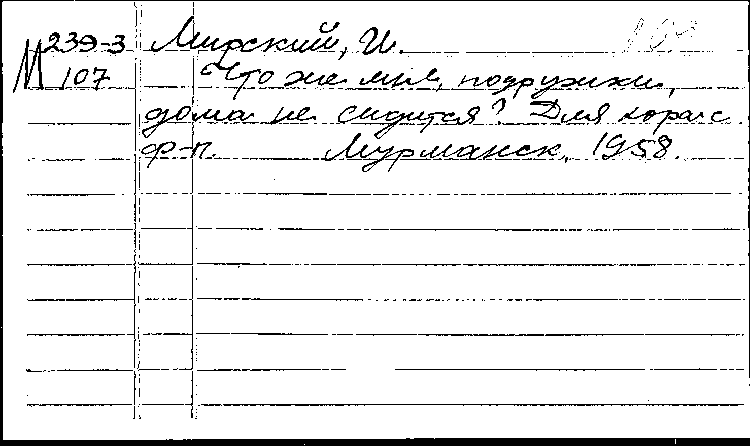 М 239-3 Мирский, И.
107 Что же мне, подружки,
дома не сидится? Для хора с
ф-п. Мурманск, 1958.